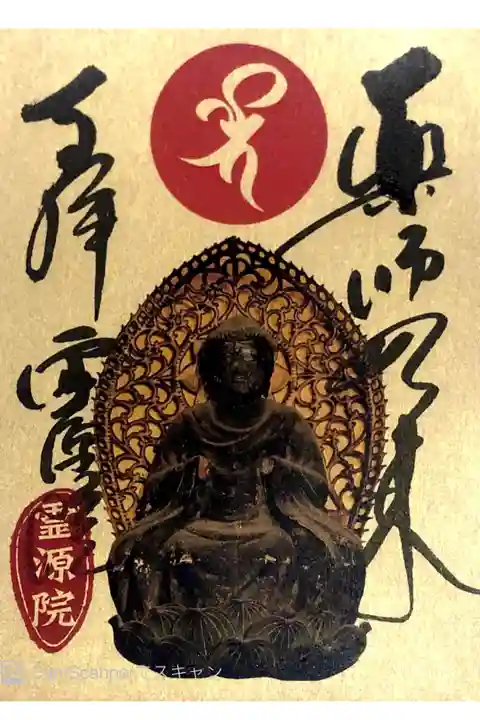 薬師如来
奉拝
霊源院
霊源院
CamScannerでスキャン